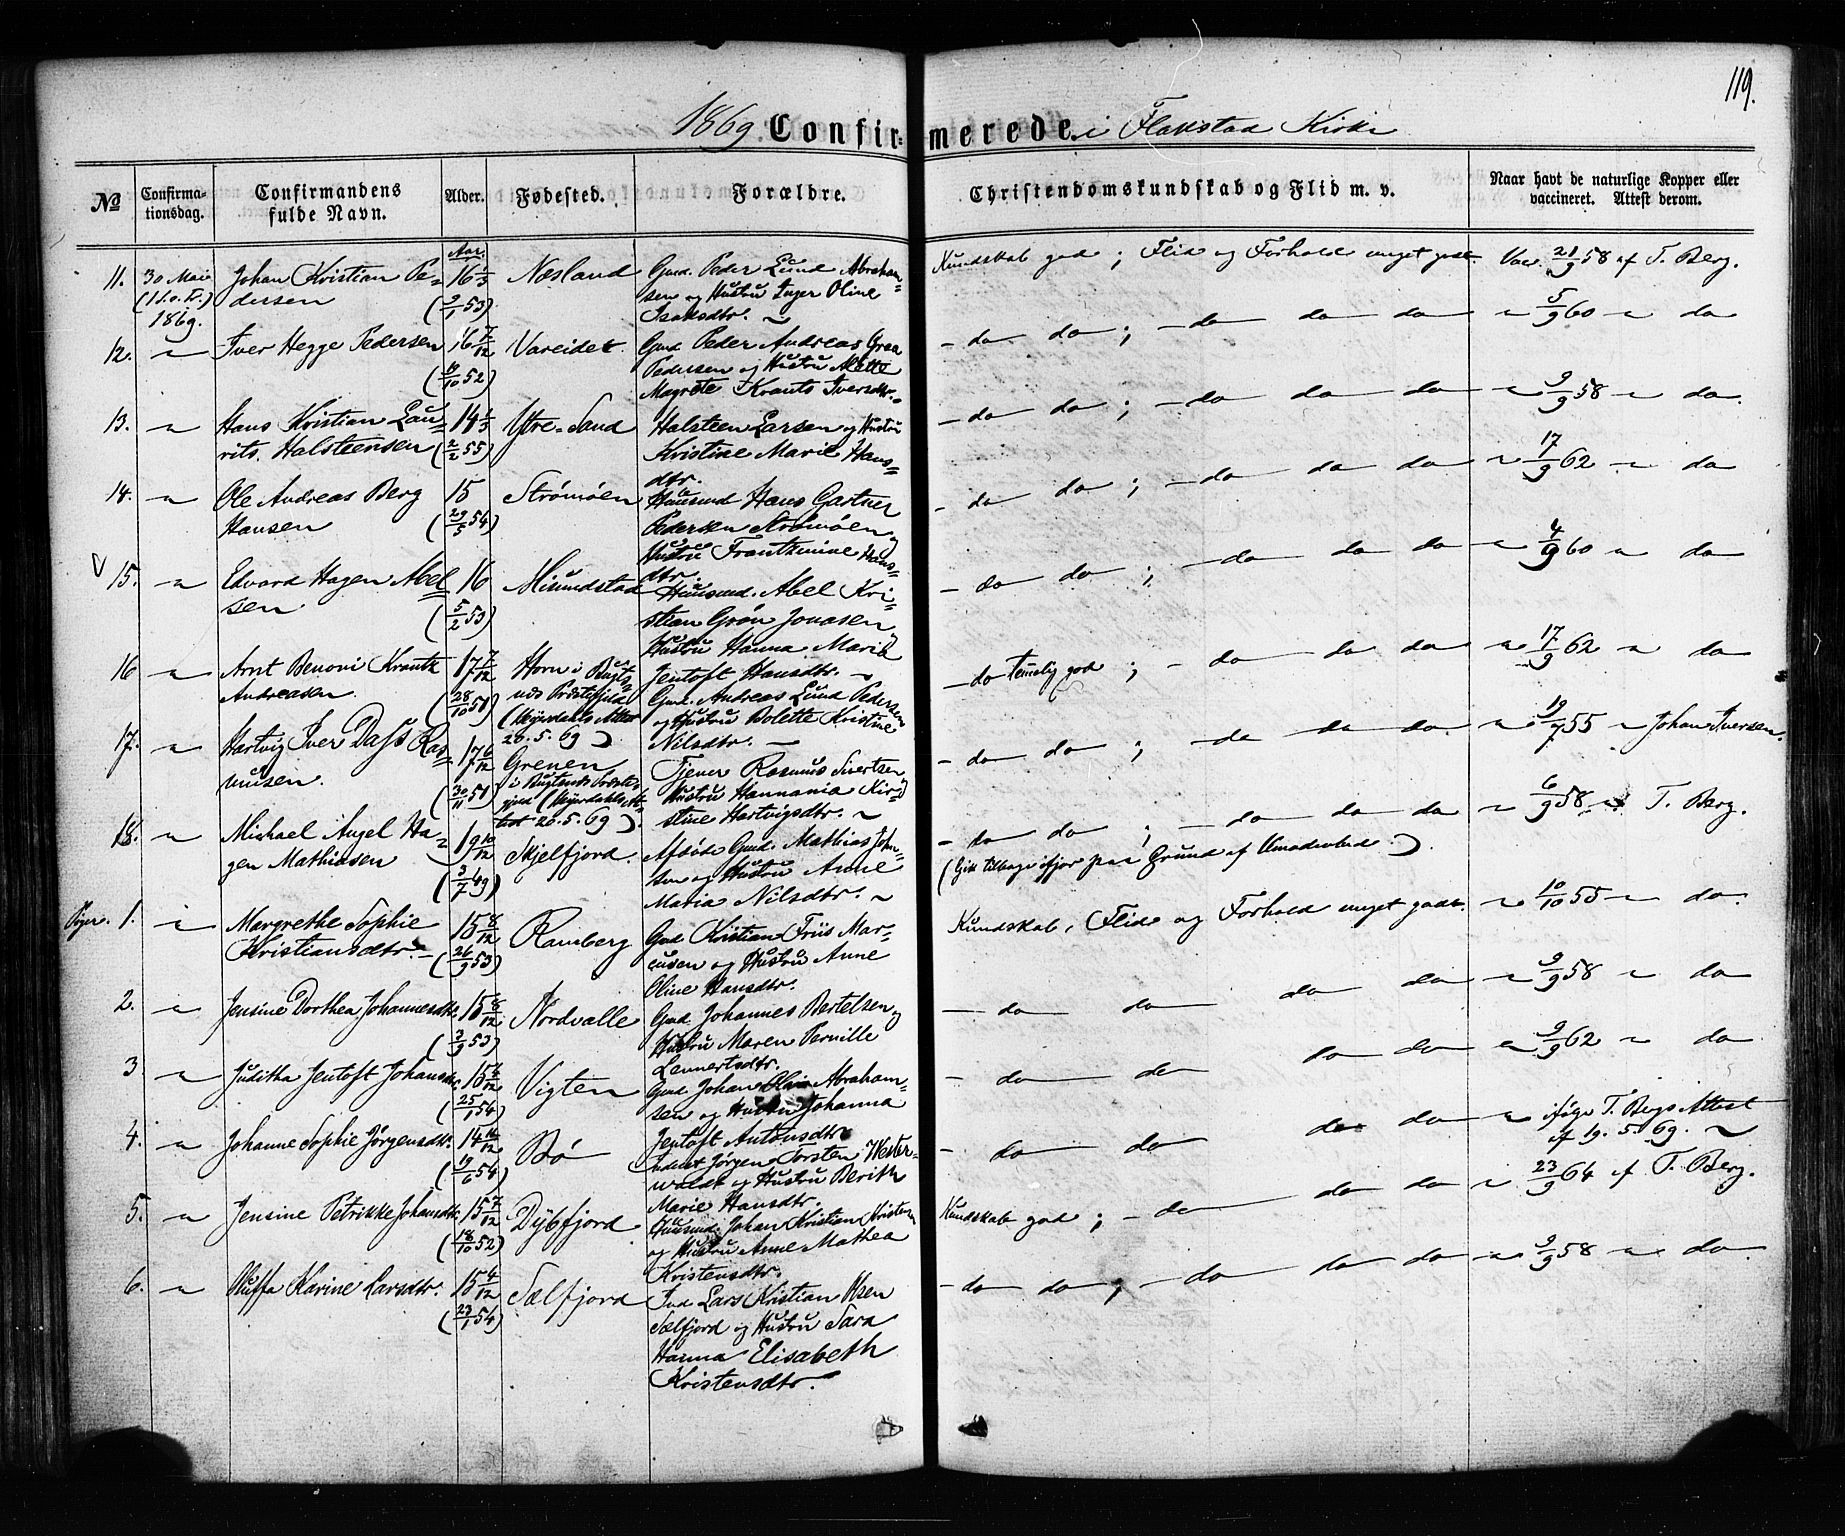 119.
1869. Confirmerede i Flakstad Kirke
No
Confirmationsdag.
Confirmandens fulde Navn.
Alder.
Fødested.
Forældre.
Christendomskundskab og Flid m. v.
Naar havt de naturlige Kopper eller vaccineret. Attest derom.
11. 30 Mai (1 S. e. Tr.) 1869. Johan Kristian Pe-
dersen
Aar. 16 1/3 (9/1 53) Næsland
Gmd. Peder Lund Abraham-
sen og Hustru Inger Oline
Isaksdtr. ~
Kundskab god; Flid og Forhold meget godt. Vac. 21/9 58 af T. Berg.
12. " Iver Hegge Pedersen 16 7/12 (/10 52) Vareidet
Gmd Peder Andreas Graa
Pedersen og Hustru Mette
Magrete Krants Iversdtr.
- do do; - do do do " 5/9 60 " do
13. " Hans Kristian Lau-
rits. Halsteensen 14 1/3 (2/2 55) Ytre-Sand
Halsteen Larsen og Hustru
Kristine Marie Hans-
dtr.
- do do; - do do do " 9/9 58 " do.
14. " Ole Andreas Berg
Hansen 15 (29/5 54) Strømøen
Huusmd Hans Gartner
Pedersen Strømøen og
Hustru Frantzmine Hans-
dtr.
- do do; - do do do " 17/9 62 " do
V 15. " Edvard Hagen Abel-
sen 16 (5/2 53) Misundstad
Huusmd. Abel Kri-
stian Grøn Jonasen og
Hustru Hanna Maria
Jentoft Hansdtr. ~
- do do; - do do do " 4/9 60 " do
16 " Arnt Benoni Krantz
Andreasen. 17 7/12 (28/10 51)
Horn i Bugts-
nes Præstegjeld
(Meyerdahls Attest
20. 5. 69)
Gmd. Andreas Lund Pedersen
og Hustru Bolette Kristine
Nilsdtr. ~
- do temelig god; - do do do " 17/9 62 " do
17. " Hartvig Iver Dass Ras-
musen. 17 6/12 (30/11 51)
Grenen
i Bugtsnes Præste-
gjeld (Meyerdahls At-
test 20. 5. 69).
Tjener Rasmus Sivertsen og
Hustru Hannania Kir-
stine Hartvigsdtr. ~
- do do; - do do do. " 19/7 55 " Johan Iversen.
18. " Mishael Angel Ha-
gen Mathiasen 19 10/12 (3/7 49) Skjelfjord.
Afdøde Gmd. Mathias John-
sen og Hustru Anne
Maria Nilsdtr. ~
- do do; - do do do " 6/9 58 af T. Berg.
(Gik tilbage ifjor paa Grund af Umodenhed.)
Piger. 1. " Margrethe Sophie
Kristiansdtr. 15 8/12 (26/9 53) Ramberg
Gmd Kristian Friis Mar-
cusen og Hustru Anne
Oline Hansdtr.
Kundskab, Flid og Forhold meget godt. " 10/10 55 " do.
2. " Jensine Dorthea Johannesdtr. 15 8/12 (3/9 53) Nordvalle
Gmd. Johannes Bertelsen og
Hustru Maren Pernille
Lennertsdtr.
- do do do do " 9/9 58 " do
3. " Juditha Jentoft Johansdtr. 15 4/12 (25/1 54) Vigten
Gmd Johan Abraham-
sen og Hustru Johanna
Jentoft Antonsdtr.
- do do do do " 9/9 62 " do
4. " Johanne Sophie Jørgensdtr. 14 11/12 (19/6 54) Bø
Inderst Jørgen Torsten Wester-
waldt og Hustru Berith
Marie Hansdtr.
- do do do do " ifølge T. Bergs Attest
af 19. 5. 69. ~
5. " Jensine Petrikke Johansdtr. 15 7/12 (18/10 52) Dybfjord
Huusmd. Johan Kristian Kristensen
og Hustru Anne Mathea
Kristensdtr.
Kundskab god; - do do do " 23/9 64 af T. Berg.
6. " Oluffa Karine Larsdtr. 15 4/12 (23/1 54) Sælfjord
Ind Lars Kristian Olsen
Sælfjord og Hustru Sara
Hanna Elisabeth
Kristensdtr.
- do do; - do do do " 9/9 58 " do.